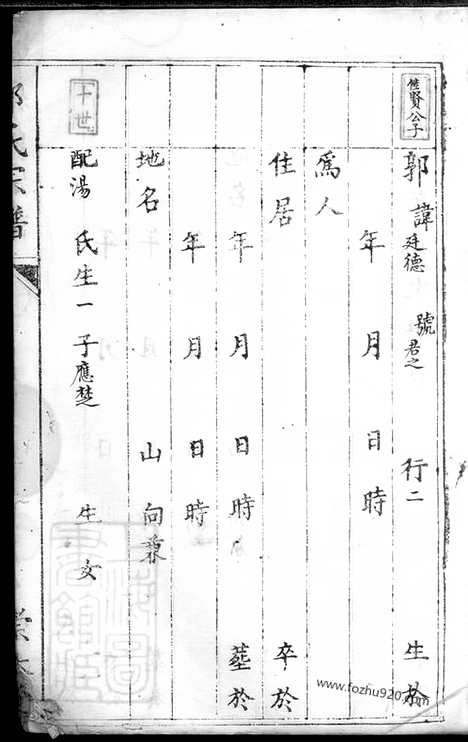 佳賢公子
郭 諱廷德 號君之 行二 生於
年 月 日時
為人
住居 卒於
年 月 日時 葬於
年 月 日時
地名 山 向
配湯 氏生一 子應楚 生 女
十世
氏宗譜
www.fozhu920.com